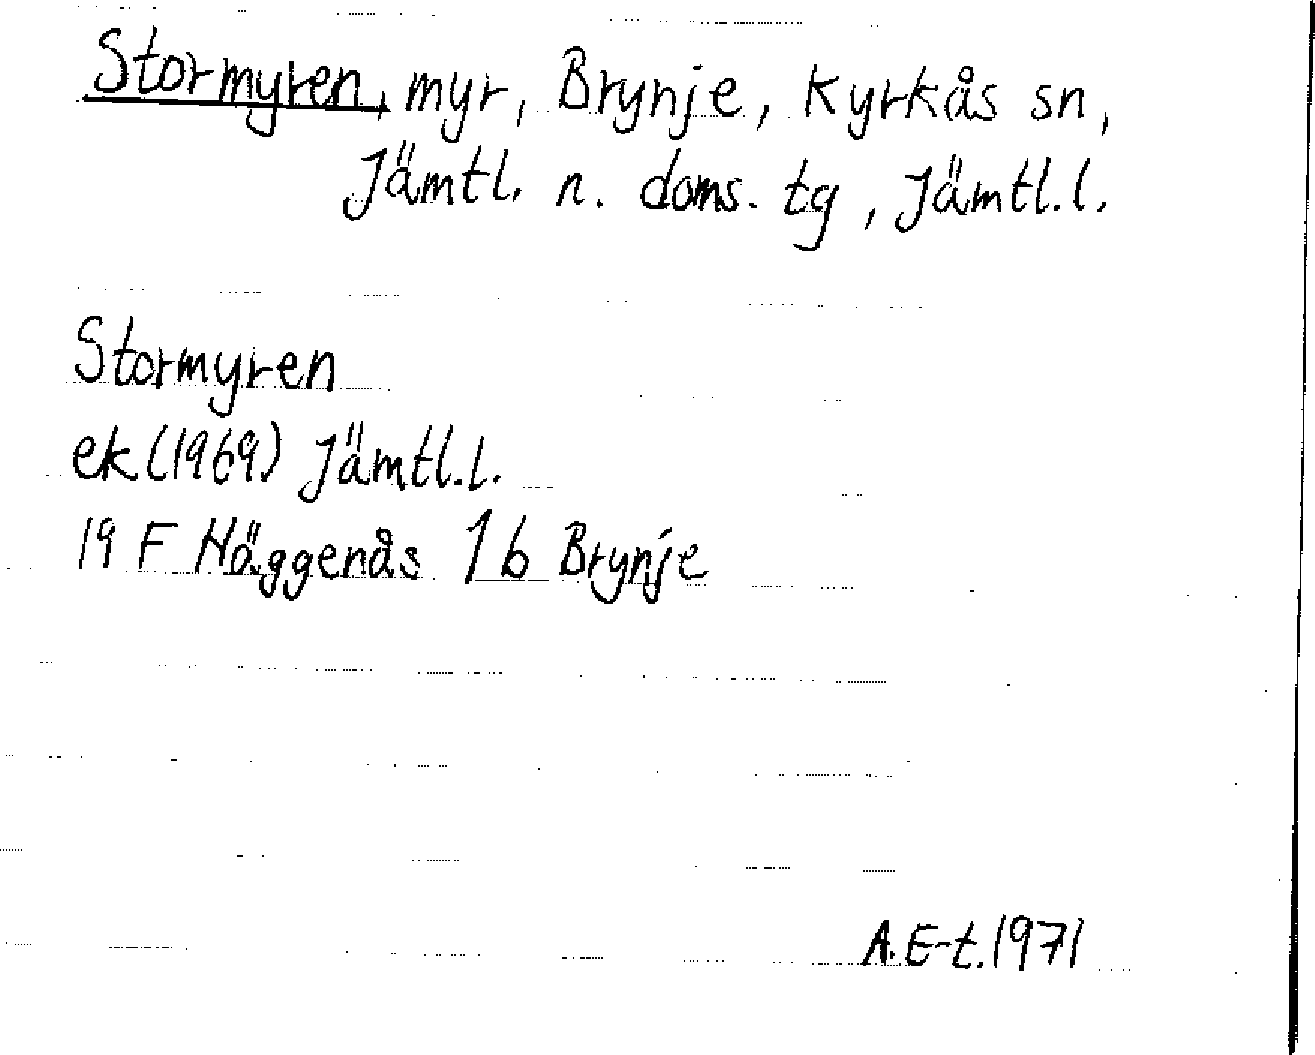 Stormyren, myr, Brynje, Kyrkås sn,
Jämtl. n. doms. tg, Jämtl.l.
Stormyren
ek (1969) Jämtl.l.
19 F Häggenås 1 b Brynje
A. E-t. 1971